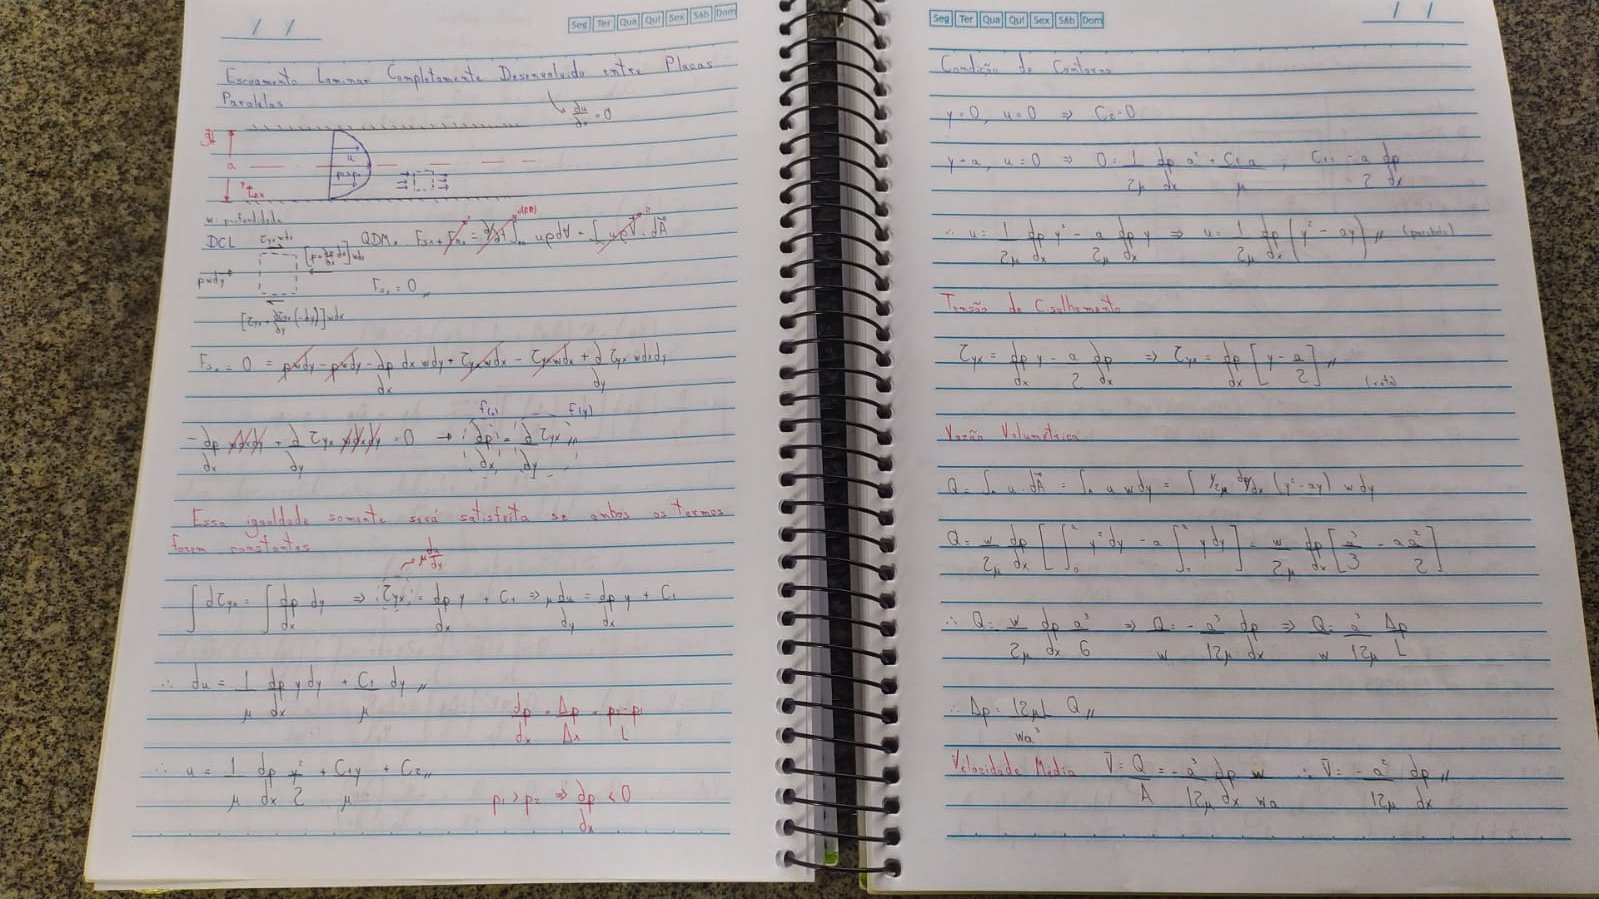 Seg Ter Qua Qui Sex Sáb Dom
Escoamento Laminar Completamente Desenvolvido entre Placas
Paralelas
du/dx = 0
a
u
w: profundidade
DCL
QDM. F_Sx + F_Bx = d/dt ∫ uρd∀ + ∫ uρV̄. dĀ
p w dy
[p + ∂p/∂x dx] wdy
F_Sx = 0 ,,
[τyx + dτyx/dy (-dy)] wdx
F_Sx = 0 = pwdy - pwdy - dp/dx dx wdy + τyx wdx - τyx wdx + d/dy τyx wdxdy
-dp/dx wdxdy + d/dy τyx wdxdy = 0 → dp/dx = d/dy τyx ,,
f(x) f(y)
Essa igualdade somente será satisfeita se ambos os termos
forem constantes
μ du/dy
∫ dτyx = ∫ dp/dx dy ⇒ τyx = dp/dx y + C1 ⇒ μ du/dy = dp/dx y + C1
∴ du = 1/μ dp/dx y dy + C1/μ dy ,,
dp/dx = Δp/Δx = p2-p1/L
∴ u = 1/μ dp/dx y²/2 + C1y/μ + C2 ,,
p1 > p2 ⇒ dp/dx < 0
Seg Ter Qua Qui Sex Sáb Dom
Condição de Contorno
y=0, u=0 ⇒ C2=0
y=a, u=0 ⇒ 0 = 1/2μ dp/dx a² + C1 a/μ ; C1 = -a/2 dp/dx
∴ u = 1/2μ dp/dx y² - a/2μ dp/dx y ⇒ u = 1/2μ dp/dx (y² - ay) ,, (parábola)
Tensão de Cisalhamento
τyx = dp/dx y - a/2 dp/dx ⇒ τyx = dp/dx [y - a/2] ,, (reta)
Vazão Volumétrica
Q = ∫A u. dĀ = ∫A u w dy = ∫ 1/2μ dp/dx (y² - ay) w dy
Q = w/2μ dp/dx [∫ y² dy - a ∫ y dy] = w/2μ dp/dx [a³/3 - a a²/2]
∴ Q = w/2μ dp/dx a³/6 ⇒ Q/w = - a³/12μ dp/dx ⇒ Q/w = a³/12μ Δp/L
∴ Δp = 12μL/wa³ Q ,,
Velocidade Média V̄ = Q/A = - a³/12μ dp/dx w/wa ∴ V̄ = - a²/12μ dp/dx ,,